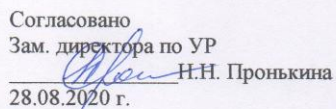 Согласовано
Зам. директора по УР
________________Н.Н. Пронькина
28.08.2020 г.